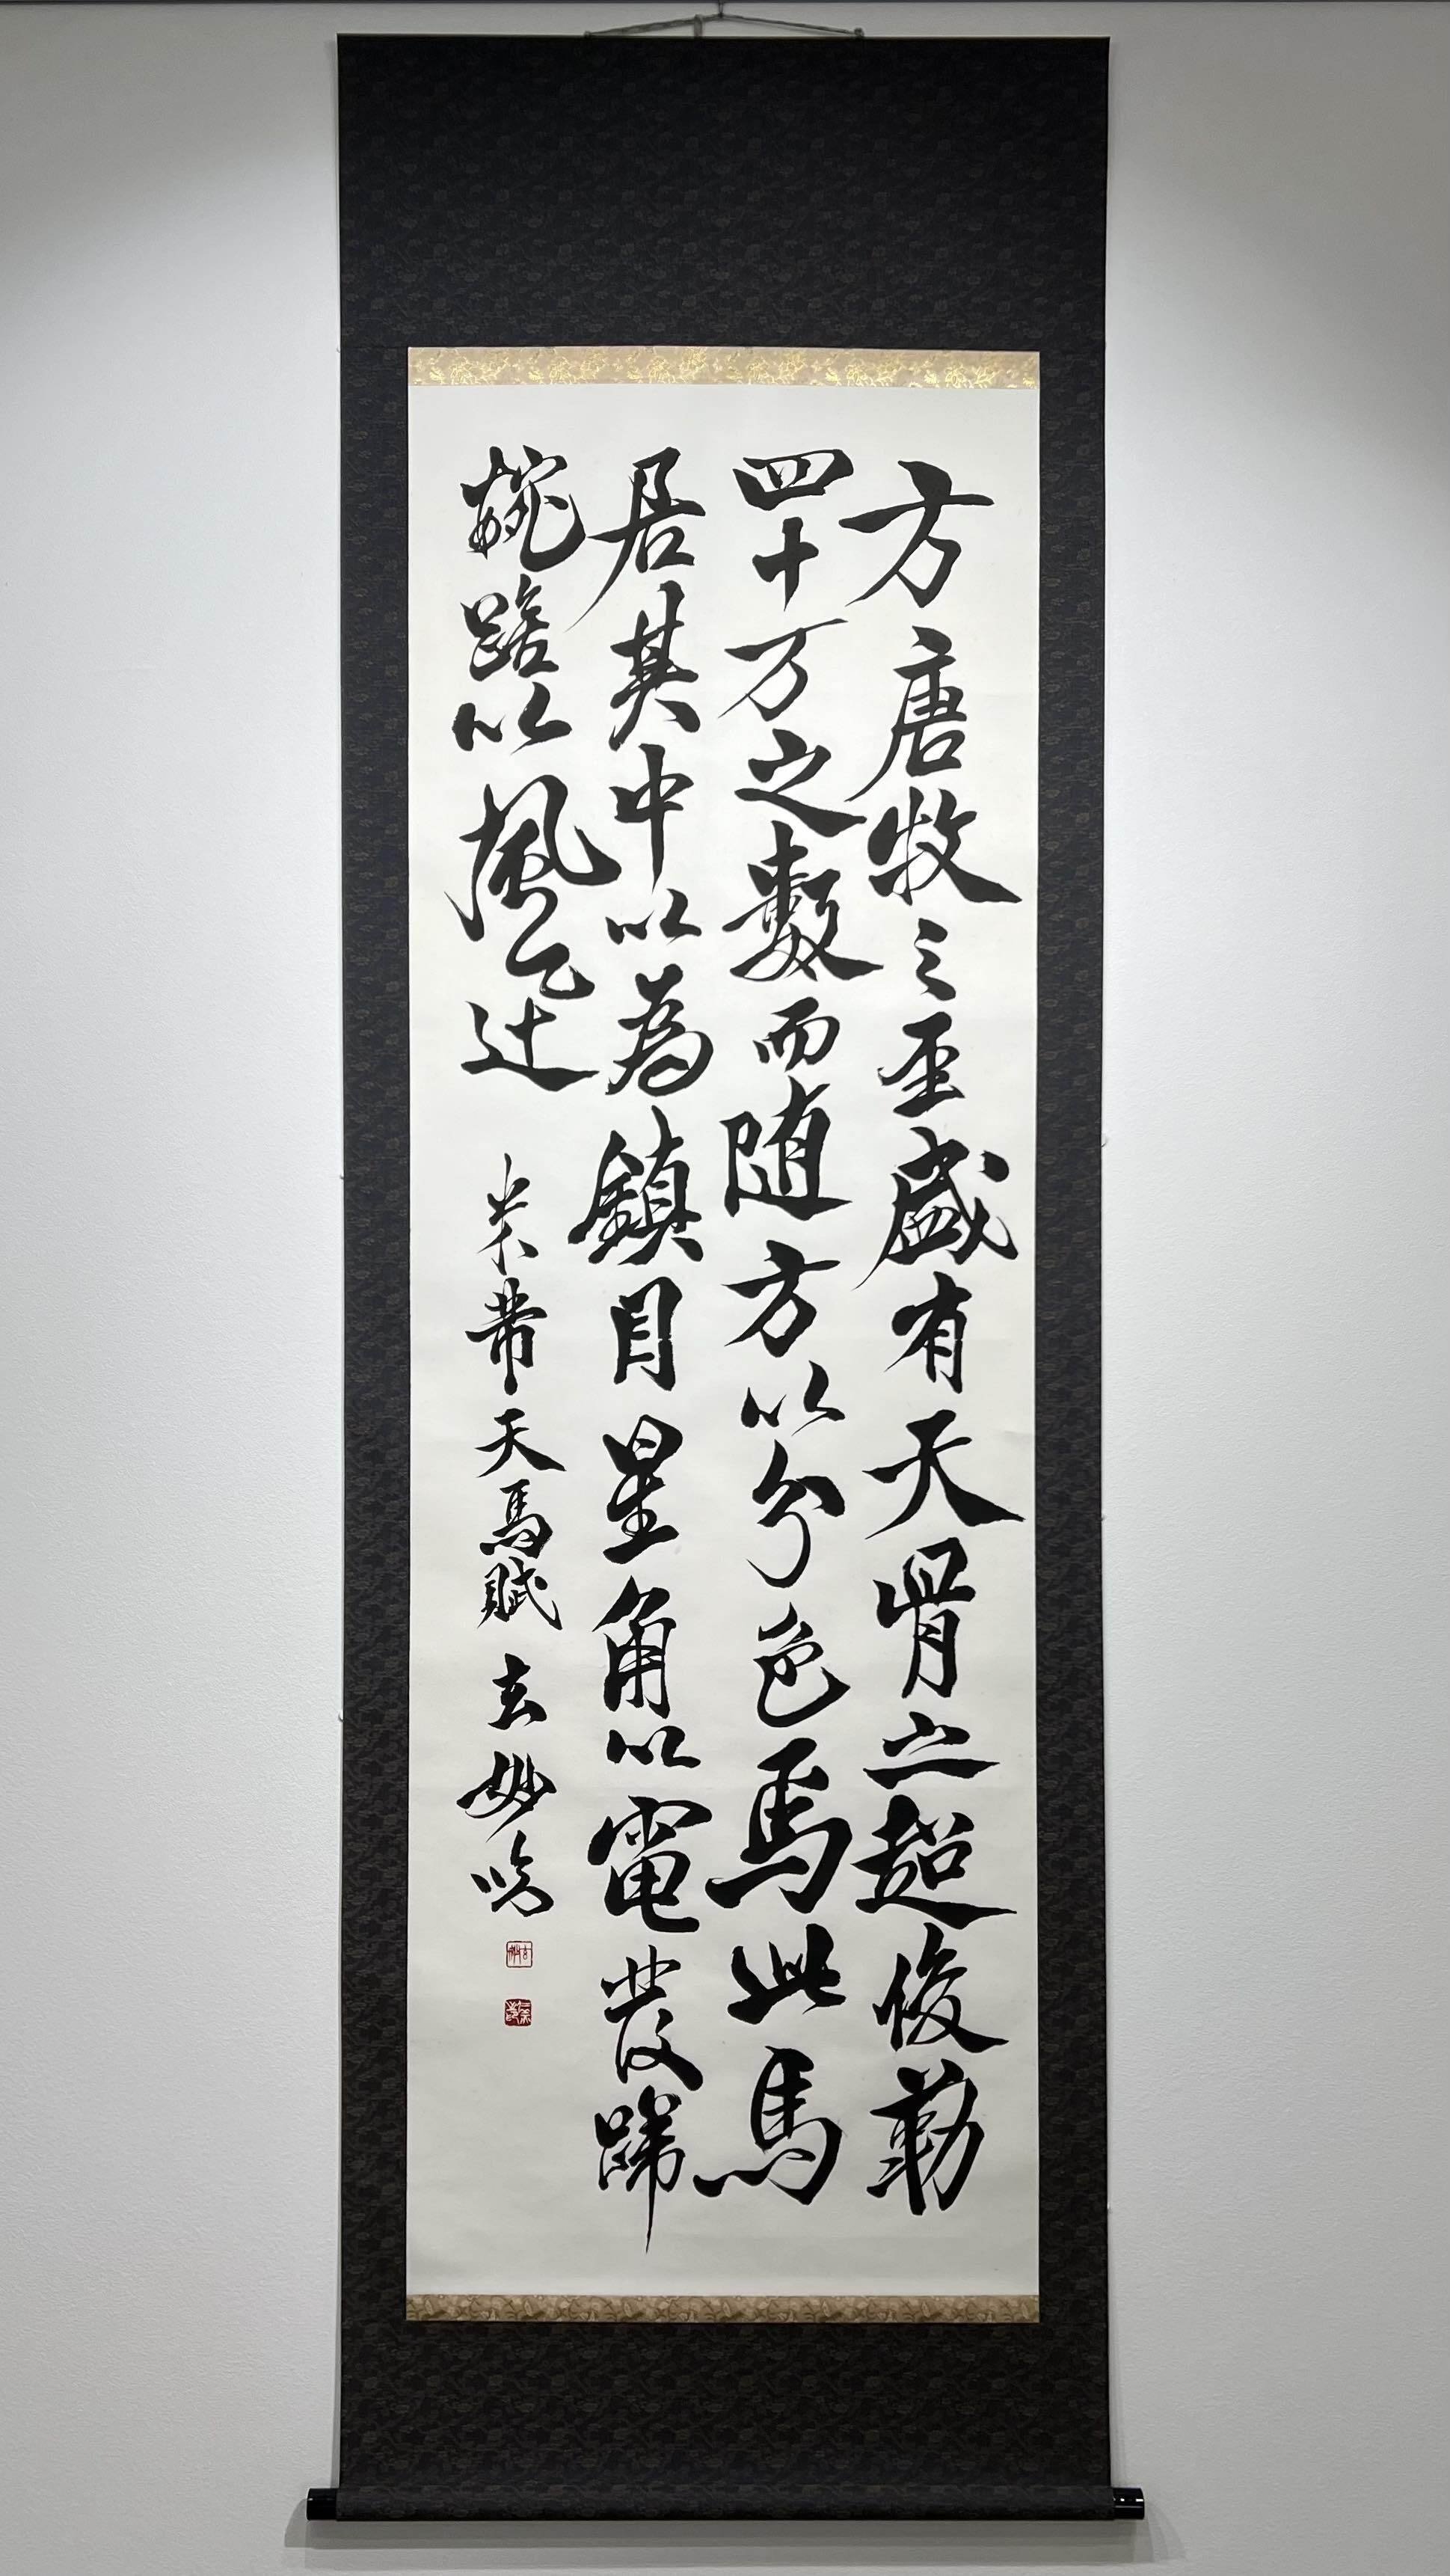 方唐牧之至盛有天骨之超俊勒
四十万之數而随方以分色焉此馬
居其中以為鎮目星角以電發蹄
椀踣以風迅 米芾天馬賦 玄妙